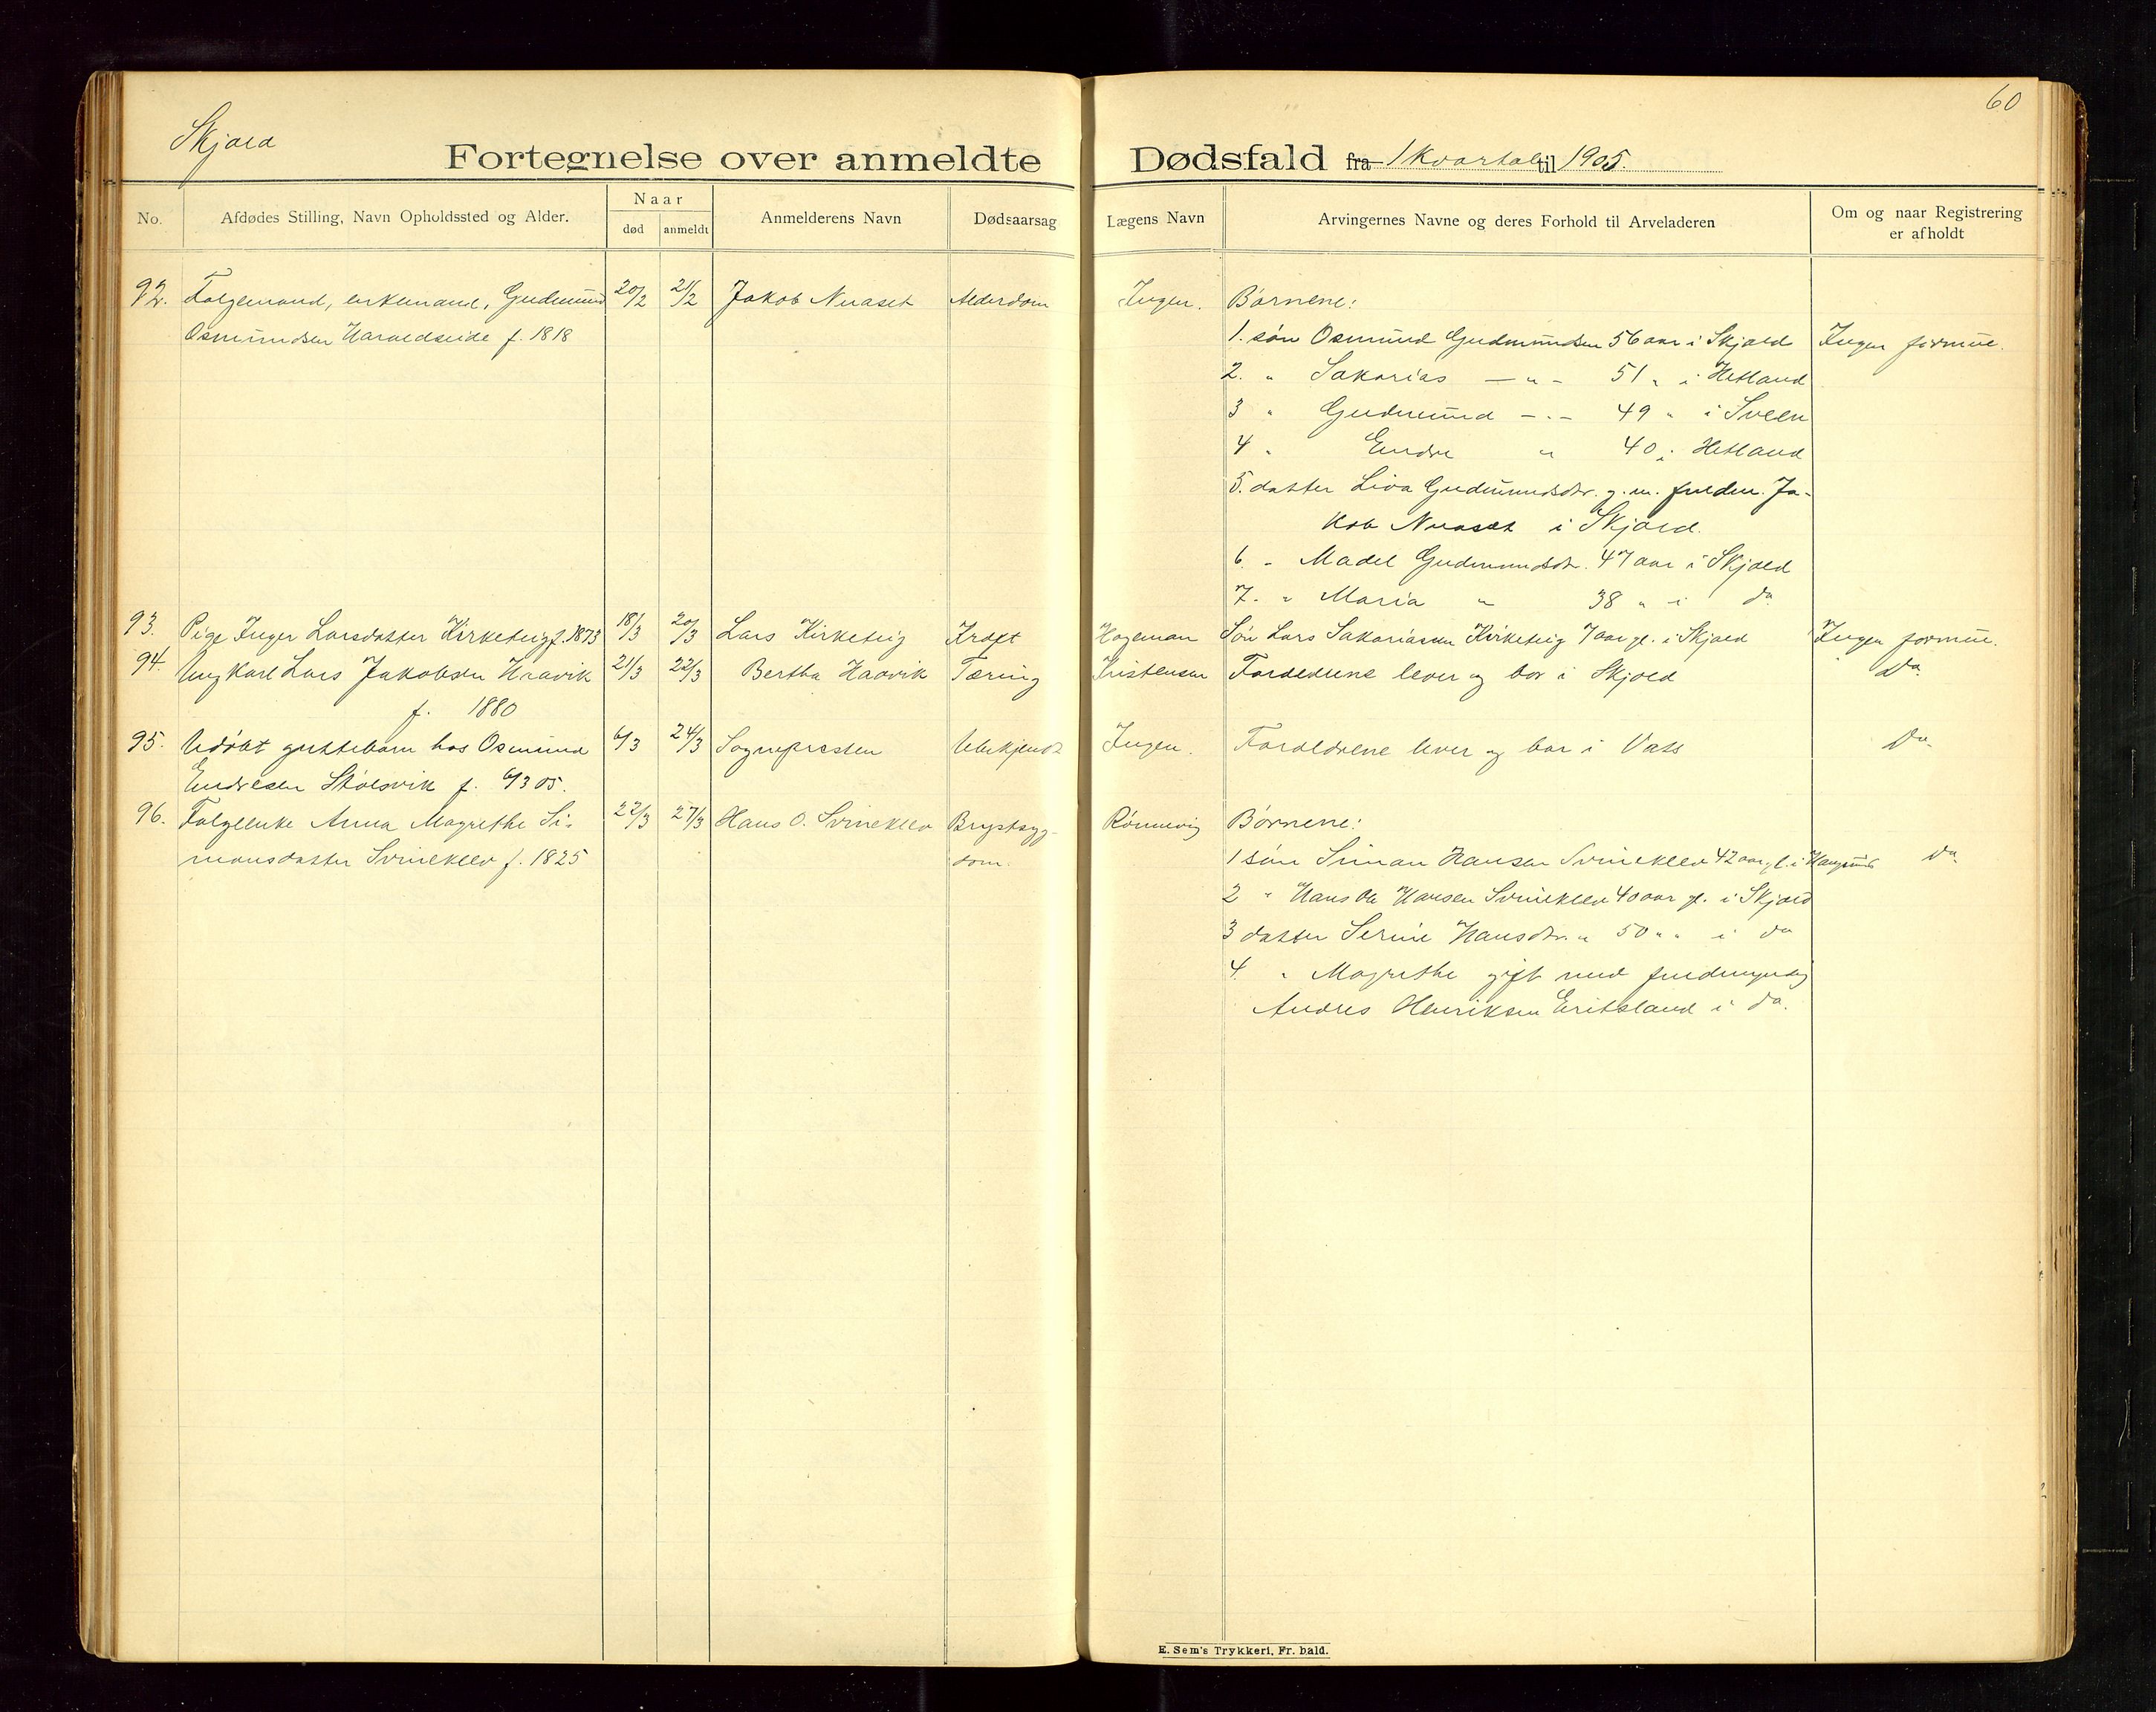 60
Skjold
Fortegnelse over anmeldte Dødsfald fra 1 kvartal til 1905.
No.
Afdødes Stilling, Navn Opholdssted og Alder.
Naar
død
anmeldt
Anmelderens Navn
Dødsaarsag
Lægens Navn
Arvingernes Navne og deres Forhold til Arveladeren
Om og naar Registrering
er afholdt
92. Folgemand, enkemand, Gudmund 20/2 21/2 Jakob Nuaset Alderdom Ingen. Børnene:
Osmundsen Haraldseide f. 1818 1. søn Osmund Gudmundsen 56 aar i Skjold Ingen formue.
2. " Sakarias — " - 51 " i Hetland
3 " Gudmund - " - 49 " i Sveen
4 " Endre " 40 i Hetland
5. datter Liva Gudmundsdtr. g. m. fuldm. Ja-
kob Nuaset i Skjold.
6. " Madel Gudmundsdtr. 47 aar i Skjold
7. " Maria " 38 " i do
93. Pige Inger Larsdatter Kirketeig f. 1873 18/3 20/3 Lars Kirketeig Kræft Hageman Søn Lars Sakariasen Kirketeig 7 aar gl. i Skjold Ingen formue.
94. Ungkarl Lars Jakobsen Haavik 21/3 22/3 Bertha Haavik Tæring Kristensen Forældrene lever og bor i Skjold do
f. 1880
95. Udøbt guttebarn hos Osmund 6/3 24/3 Sognepresten Ubekjendt Ingen. Forældrene lever og bor i Vats do.
Endresen Stølsvik f. 6/3 05.
96. Folgeenke Anna Magrethe Si- 22/3 27/3 Hans O. Svineklev Brystsyg- Rønnevig Børnene:
monsdatter Svineklev f. 1825 dom. 1 søn Simon Hansen Svineklev 42 aar gl. i Haugesund do
2 " Hans Ole Hansen Svineklev 40 aar gl. i Skjold
3 datter Serine Hansdtr. " 50 " " i do
4. " Magrethe gift med fuldmyndig
Andres Henriksen Eritsland i do.
E. Sem's Trykkeri, Fr. hald.